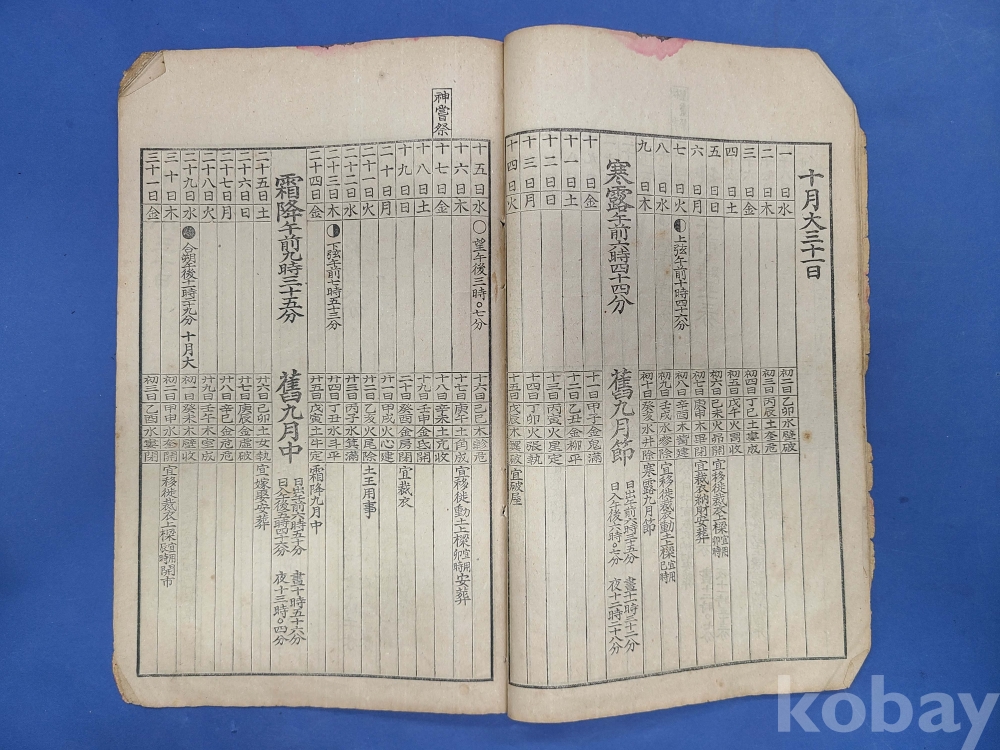 十月大三十一日
一日水 初二日乙卯水壁破
二日木 初三日丙辰土奎危
三日金 初四日丁巳土婁成
四日土 初五日戊午火胃收
五日日 初六日己未火昴開 宜移徙裁衣上樑宜用卯時
六日月 初七日庚申木畢閉 宜裁衣納財安葬
七日火 上弦午前十時四十六分 初八日辛酉木觜建
八日水 初九日壬戌水參除 宜移徙裁衣動土上樑宜用巳時
九日木 初十日癸亥水井除 寒露九月節
寒露午前六時四十四分 舊九月節 日出午前六時三十五分 晝十一時三十二分
日入午後六時〇七分 夜十二時二十八分
十日金 十一日甲子金鬼滿
十一日土 十二日乙丑金柳平
十二日日 十三日丙寅火星定
十三日月 十四日丁卯火張執
十四日火 十五日戊辰木翼破 宜破屋
神嘗祭
十五日水 望午後三時〇七分 十六日己巳木軫危
十六日木 十七日庚午土角成 宜移徙動土上樑宜用卯時安葬
十七日金 十八日辛未土亢收
十八日土 十九日壬申金氐開
十九日日 二十日癸酉金房閉 宜裁衣
二十日月 廿一日甲戌火心建
二十一日火 廿二日乙亥火尾除 土王用事
二十二日水 廿三日丙子水箕滿
二十三日木 下弦午前七時五十三分 廿四日丁丑水斗平
二十四日金 廿五日戊寅土牛定 霜降九月中
霜降午前九時三十五分 舊九月中 日出午前六時五十分 晝十時五十六分
日入午後五時四十六分 夜十三時〇四分
二十五日土 廿六日己卯土女執 宜嫁娶安葬
二十六日日 廿七日庚辰金虛破
二十七日月 廿八日辛巳金危危
二十八日火 廿九日壬午木室成
二十九日水 合朔午後十一時二十九分 十月大 初一日癸未木壁收
三十日木 初二日甲申水奎開
三十一日金 初三日乙酉水婁閉 宜移徙裁衣上樑宜用辰時開市
kobay